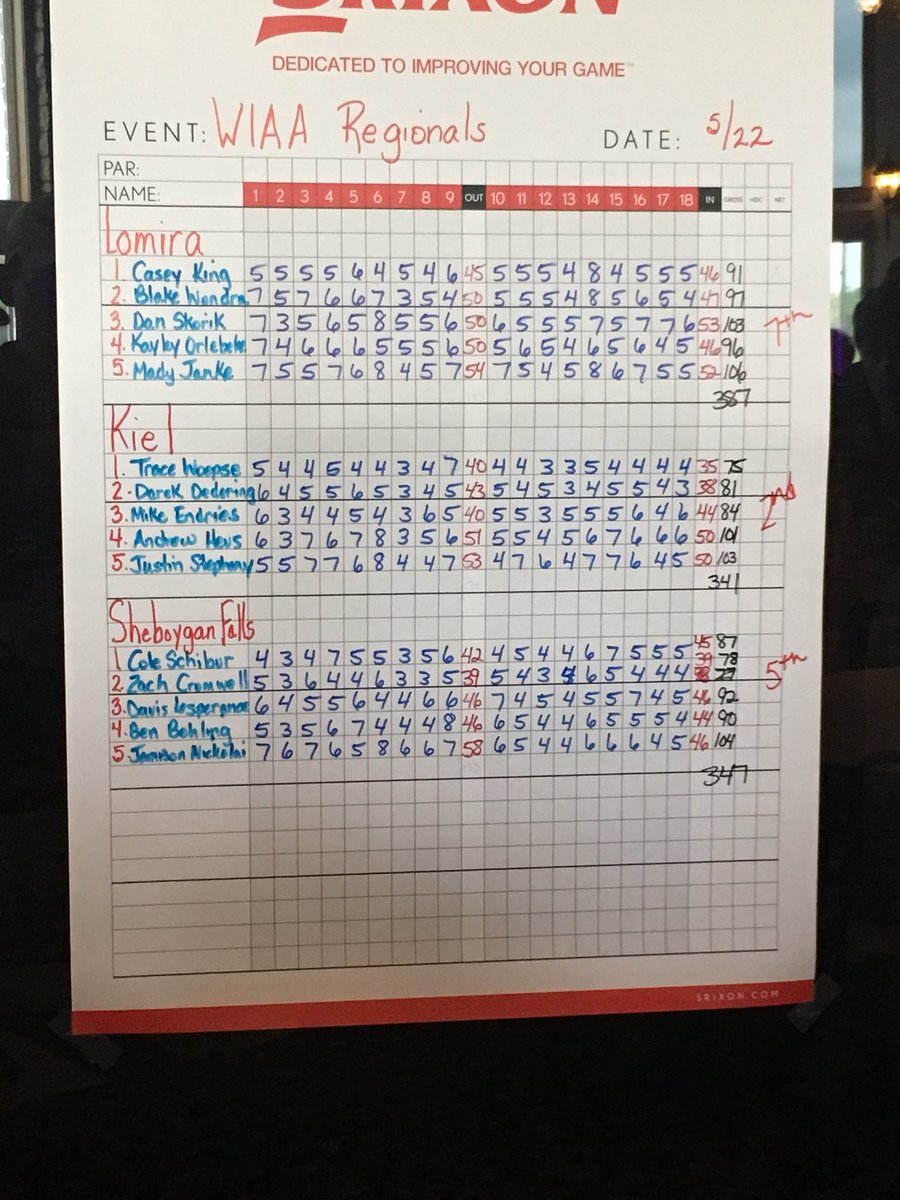 SRIXON
DEDICATED TO IMPROVING YOUR GAME™
EVENT: WIAA Regionals DATE: 5/22
PAR:
NAME: 1 2 3 4 5 6 7 8 9 OUT 10 11 12 13 14 15 16 17 18 IN GROSS HDC NET
Lomira
1. Casey King 5 5 5 5 6 4 5 4 6 45 5 5 5 4 8 4 5 5 5 46 91
2. Blake Wondra 7 5 7 6 6 7 3 5 4 50 5 5 5 4 8 5 6 5 4 47 97
3. Dan Skorik 7 3 5 6 5 8 5 5 6 50 6 5 5 5 7 5 7 7 6 53 103 7th
4. Kayley 7 4 6 6 6 5 5 5 6 50 5 6 5 4 6 5 6 4 5 46 96
5. Mady Janke 7 5 5 7 6 8 4 5 7 54 7 5 4 5 8 6 7 5 5 52 106
387
Kiel
1. Trace Woepse 5 4 4 5 4 4 3 4 7 40 4 4 3 3 5 4 4 4 4 35 75
2. Darek Dedering 6 4 5 5 6 5 3 4 5 43 5 4 5 3 4 5 5 4 3 38 81 2nd
3. Mike Endries 6 3 4 4 5 4 3 6 5 40 5 5 3 5 5 5 6 4 6 44 84
4. Andrew Hovs 6 3 7 6 7 8 3 5 6 51 5 5 4 5 6 7 6 6 6 50 101
5. Justin 5 5 7 7 6 8 4 4 7 53 4 7 6 4 7 7 6 4 5 50 103
341
Sheboygan Falls
45 87
1 Cole Schibur 4 3 4 7 5 5 3 5 6 42 4 5 4 4 6 7 5 5 5 39 78 5th
2. Zach Cromwell 5 3 6 4 4 6 3 3 5 39 5 4 3 4 6 5 4 4 4 77
3. Davis 6 4 5 5 6 4 4 6 6 46 7 4 5 4 5 5 7 4 5 46 92
4. Ben Behling 5 3 5 6 7 4 4 4 8 46 6 5 4 4 6 5 5 5 4 44 90
5. Jamison Nickolai 7 6 7 6 5 8 6 6 7 58 6 5 4 4 6 6 6 4 5 46 104
347
SRIXON.COM